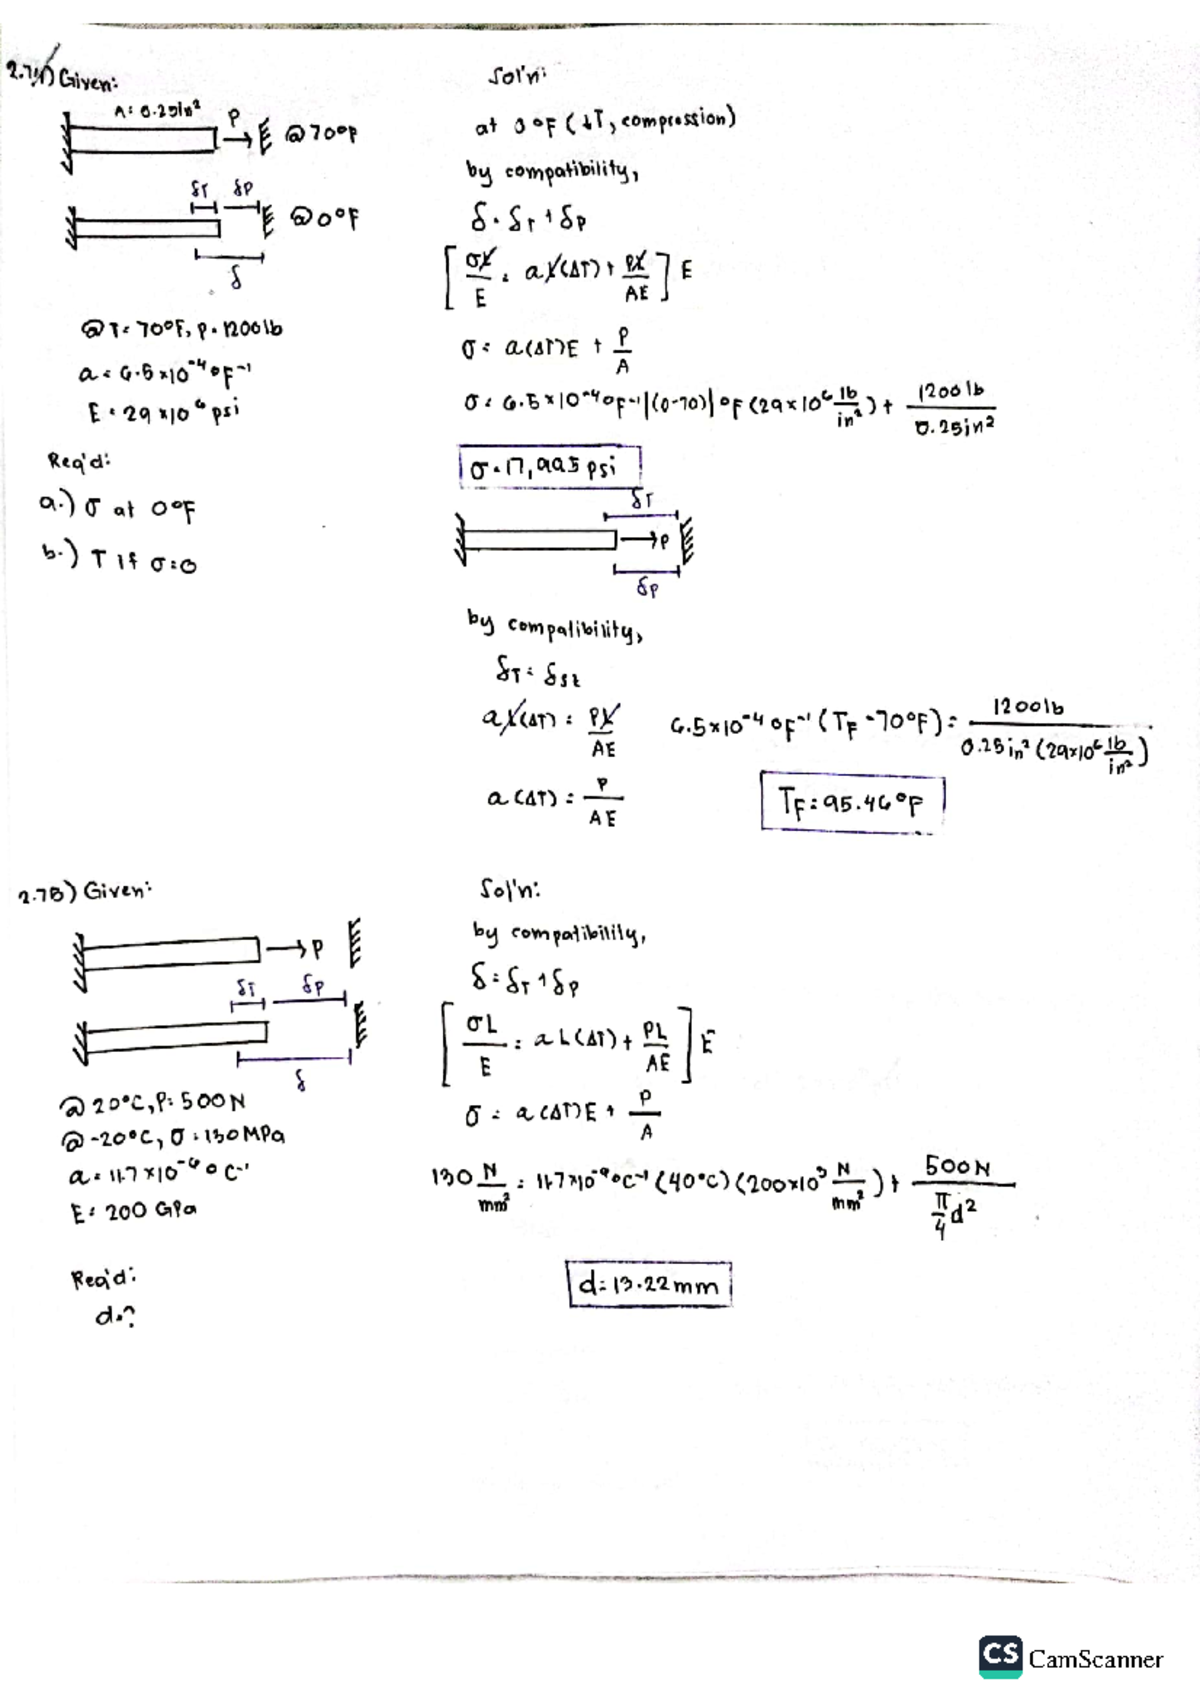 2.74) Given:
A = 0.25in²
P
@70°F
δT δP
@0°F
δ
@T = 70°F, P = 1200lb
α = 6.5 x10⁻⁴ °F⁻¹
E = 29 x10⁶ psi
Req'd:
a.) σ at 0°F
b.) T if σ=0
Sol'n:
at 0°F (↓T, compression)
by compatibility,
δ = δT + δP
[σL/E = αL(ΔT) + PL/AE] E
σ = α(ΔT)E + P/A
σ = 6.5x10⁻⁴ °F⁻¹|(0-70)|°F (29x10⁶ lb/in²) + 1200lb/0.25in²
σ = 17,995 psi
δT
P
δP
by compatibility,
δT = δst
αL(ΔT) = PL/AE
6.5x10⁻⁴ °F⁻¹ (TF - 70°F) = 1200lb/0.25in² (29x10⁶ lb/in²)
α(ΔT) = P/AE
TF = 95.46°F
2.75) Given:
P
δT δP
δ
@20°C, P = 500N
@-20°C, σ = 130MPa
α = 11.7x10⁻⁶ °C⁻¹
E = 200 GPa
Req'd:
d=?
Sol'n:
by compatibility,
δ = δT + δP
[σL/E = αL(ΔT) + PL/AE] E
σ = α(ΔT)E + P/A
130 N/mm² = 11.7x10⁻⁶ °C⁻¹ (40°C)(200x10³ N/mm²) + 500N/π/4 d²
d = 13.22mm
CS CamScanner